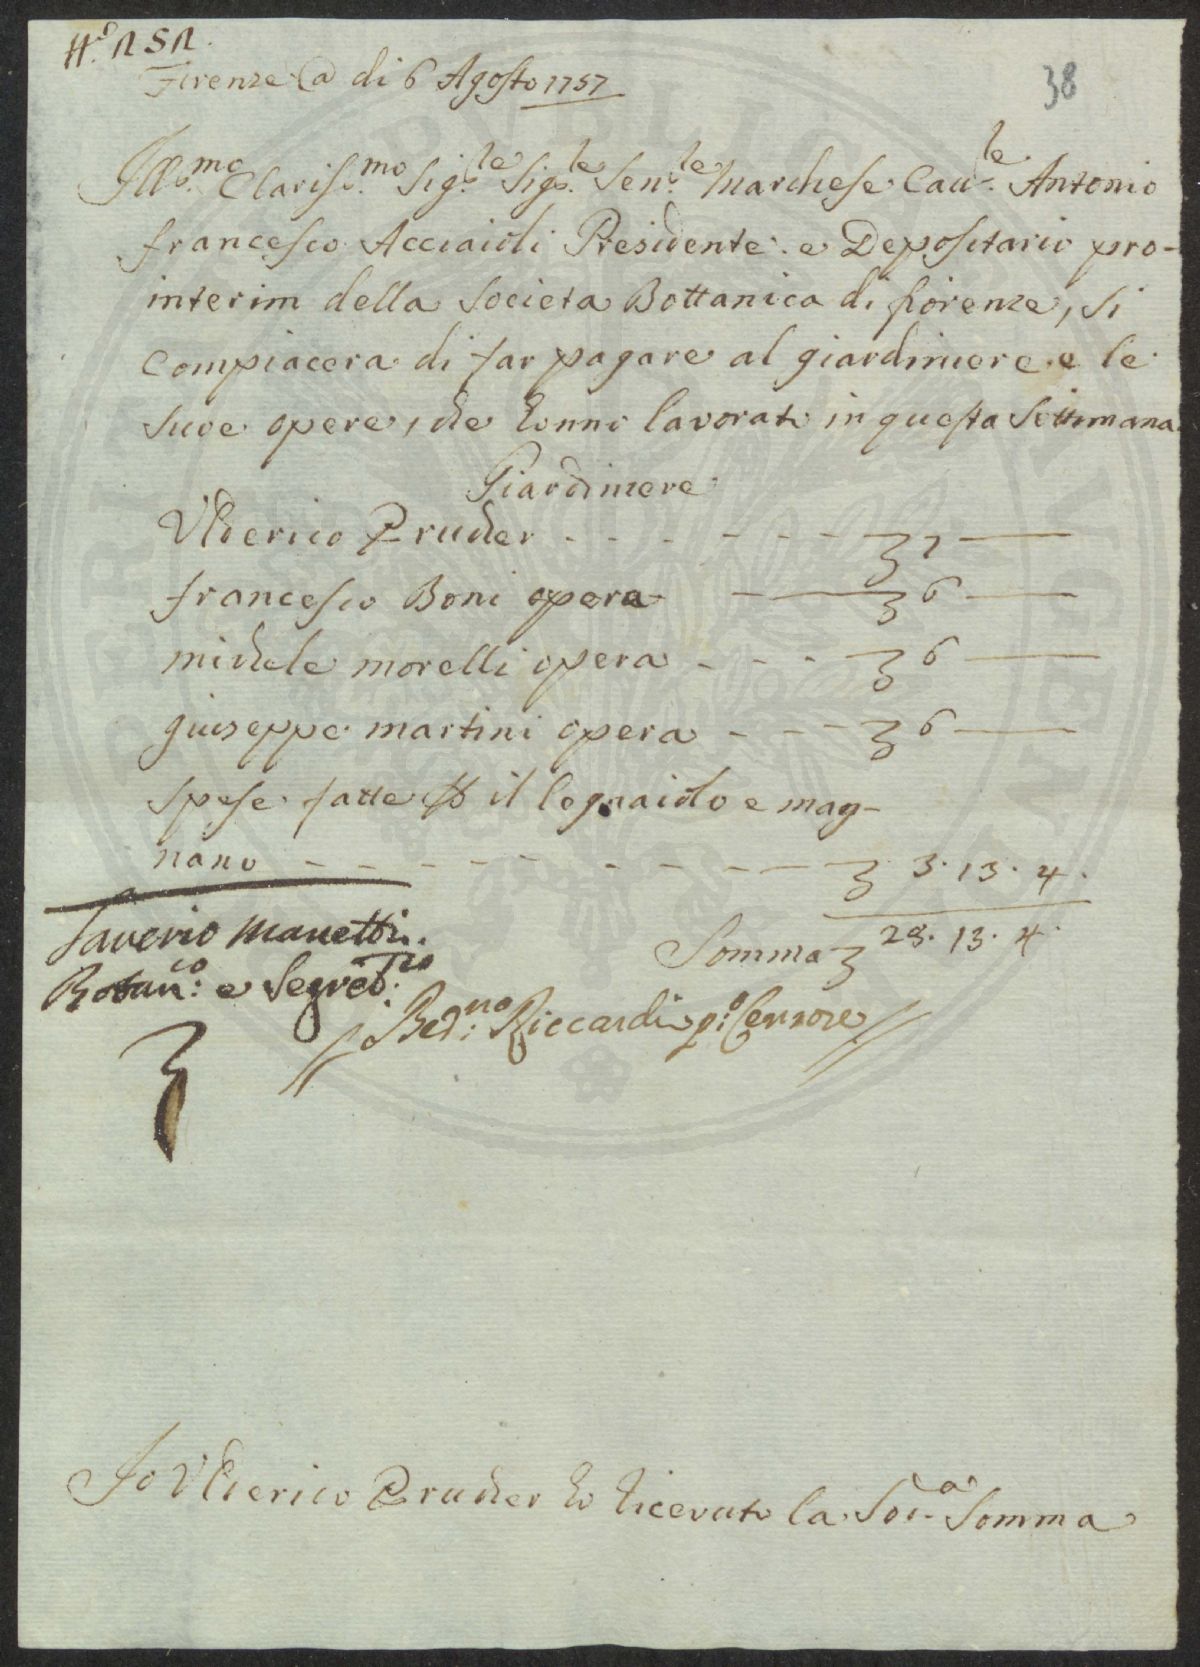 Firenze @ di 6 Agosto 1757
38
Ill.mo Clariss.mo Sig.le Sig.le Sen.le Marchese Cau.le Antonio
francesco Acciaioli Presidente e Depositario pro-
interim della Societa Bottanica di fiorenze, si
Compiacera di far pagare al giardiniere e le
sue opere, che hanno lavorato in questa Settimana.
Giardiniere
Ulderico Pruker 7
francesco Boni opera 6
michele morelli opera 6
giuseppe martini opera 6
spese fatte il legnaiolo e mag-
nano 3. 13. 4.
Somma 28. 13. 4.
Saverio Manetti.
Botan.co e Segret.rio
Bed.no Riccardi p.o Censore
Io Ulderico Pruker ho ricevuto la Sod.a Somma